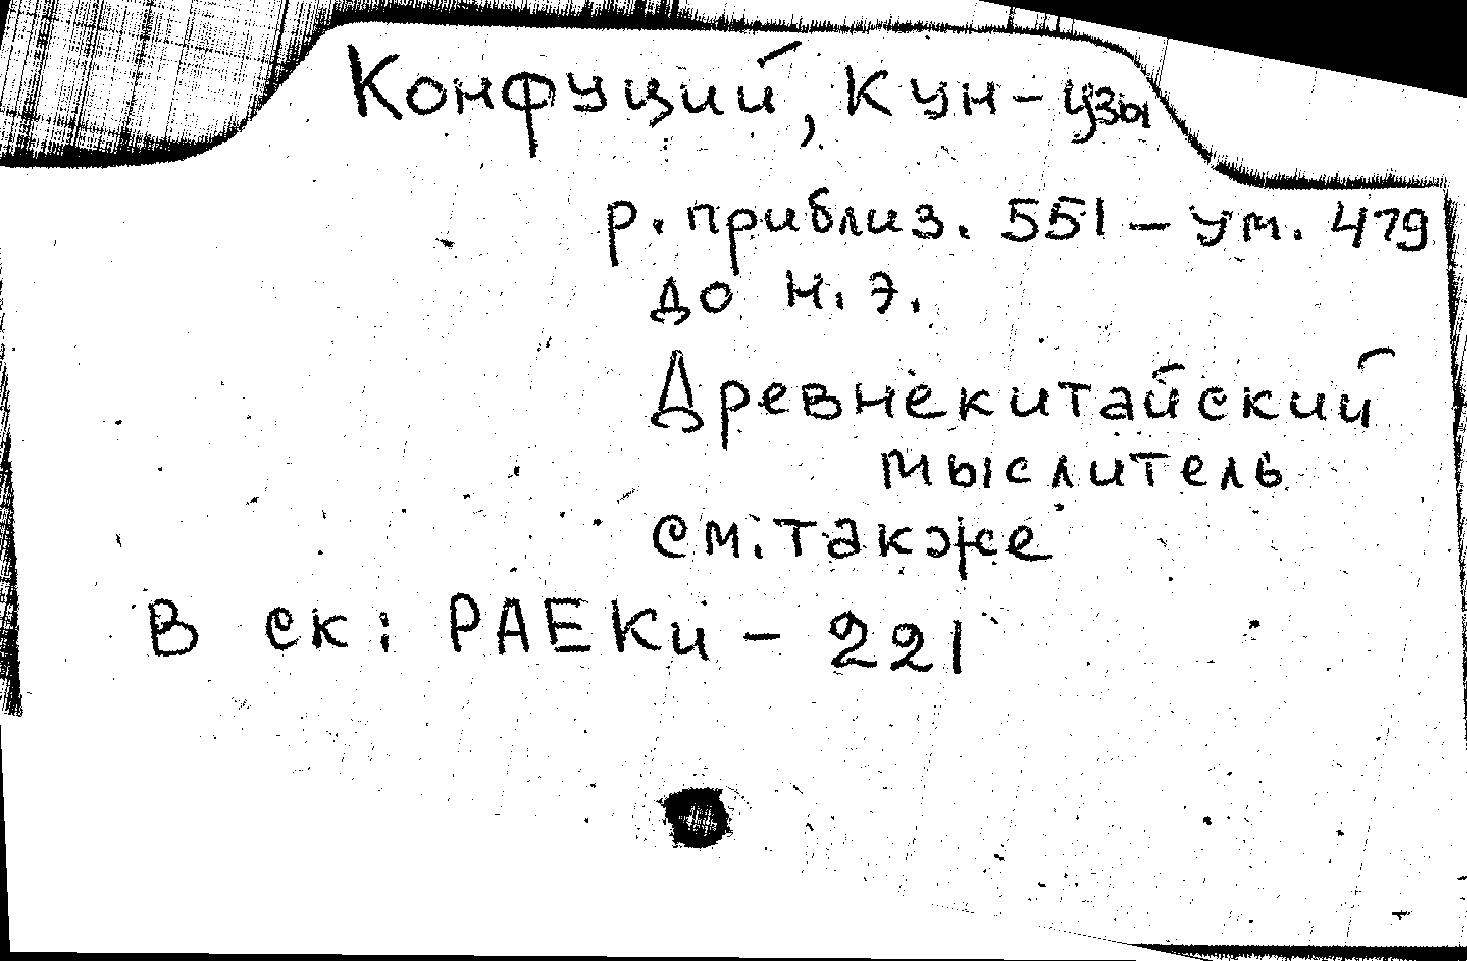 Конфуций, Кун-цзы
р. приблиз. 551 – ум. 479
до н. э.
Древнекитайский
мыслитель
см. также
В ск: РАЕКи – 221